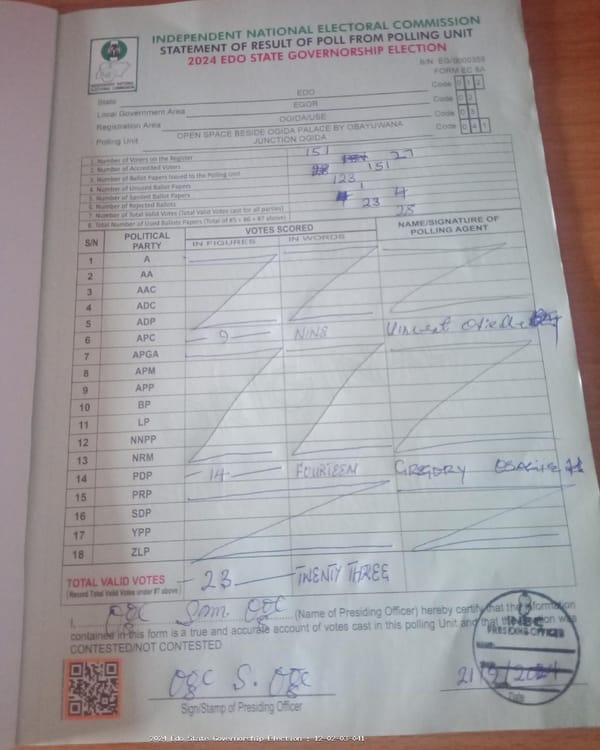 INDEPENDENT NATIONAL ELECTORAL COMMISSION
STATEMENT OF RESULT OF POLL FROM POLLING UNIT
2024 EDO STATE GOVERNORSHIP ELECTION
INDEPENDENT NATIONAL ELECTORAL COMMISSION
S/N: EG/0000359
FORM EC 8A
State EDO Code 0 1 2
Local Government Area EGOR Code 0 2
Registration Area OGIDA/USE Code 0 3
Polling Unit OPEN SPACE BESIDE OGIDA PALACE BY OBAYUWANA JUNCTION OGIDA Code 0 4 1
1. Number of Voters on the Register 151
2. Number of Accredited Voters 27
3. Number of Ballot Papers Issued to the Polling Unit 151
4. Number of Unused Ballot Papers 123
5. Number of Spoiled Ballot Papers 1
6. Number of Rejected Ballots 4
7. Number of Total Valid Votes (Total Valid Votes cast for all parties) 23
8. Total Number of Used Ballots Papers (Total of #5 + #6 + #7 above) 28
S/N POLITICAL PARTY VOTES SCORED NAME/SIGNATURE OF POLLING AGENT
IN FIGURES IN WORDS
1 A
2 AA
3 AAC
4 ADC
5 ADP
6 APC 9 NINE Vincent
7 APGA
8 APM
9 APP
10 BP
11 LP
12 NNPP
13 NRM
14 PDP 14 FOURTEEN GREGORY
15 PRP
16 SDP
17 YPP
18 ZLP
TOTAL VALID VOTES 23 TWENTY THREE
(Record Total Valid Votes under #7 above)
I, Ogc Sam Ogc (Name of Presiding Officer) hereby certify that the information
contained in this form is a true and accurate account of votes cast in this polling Unit and that the election was
CONTESTED/NOT CONTESTED
INEC
PRESIDING OFFICER
Ogc S. Ogc 21/9/2024
Sign/Stamp of Presiding Officer Date
2024 Edo State Governorship Election : 12-02-03-041